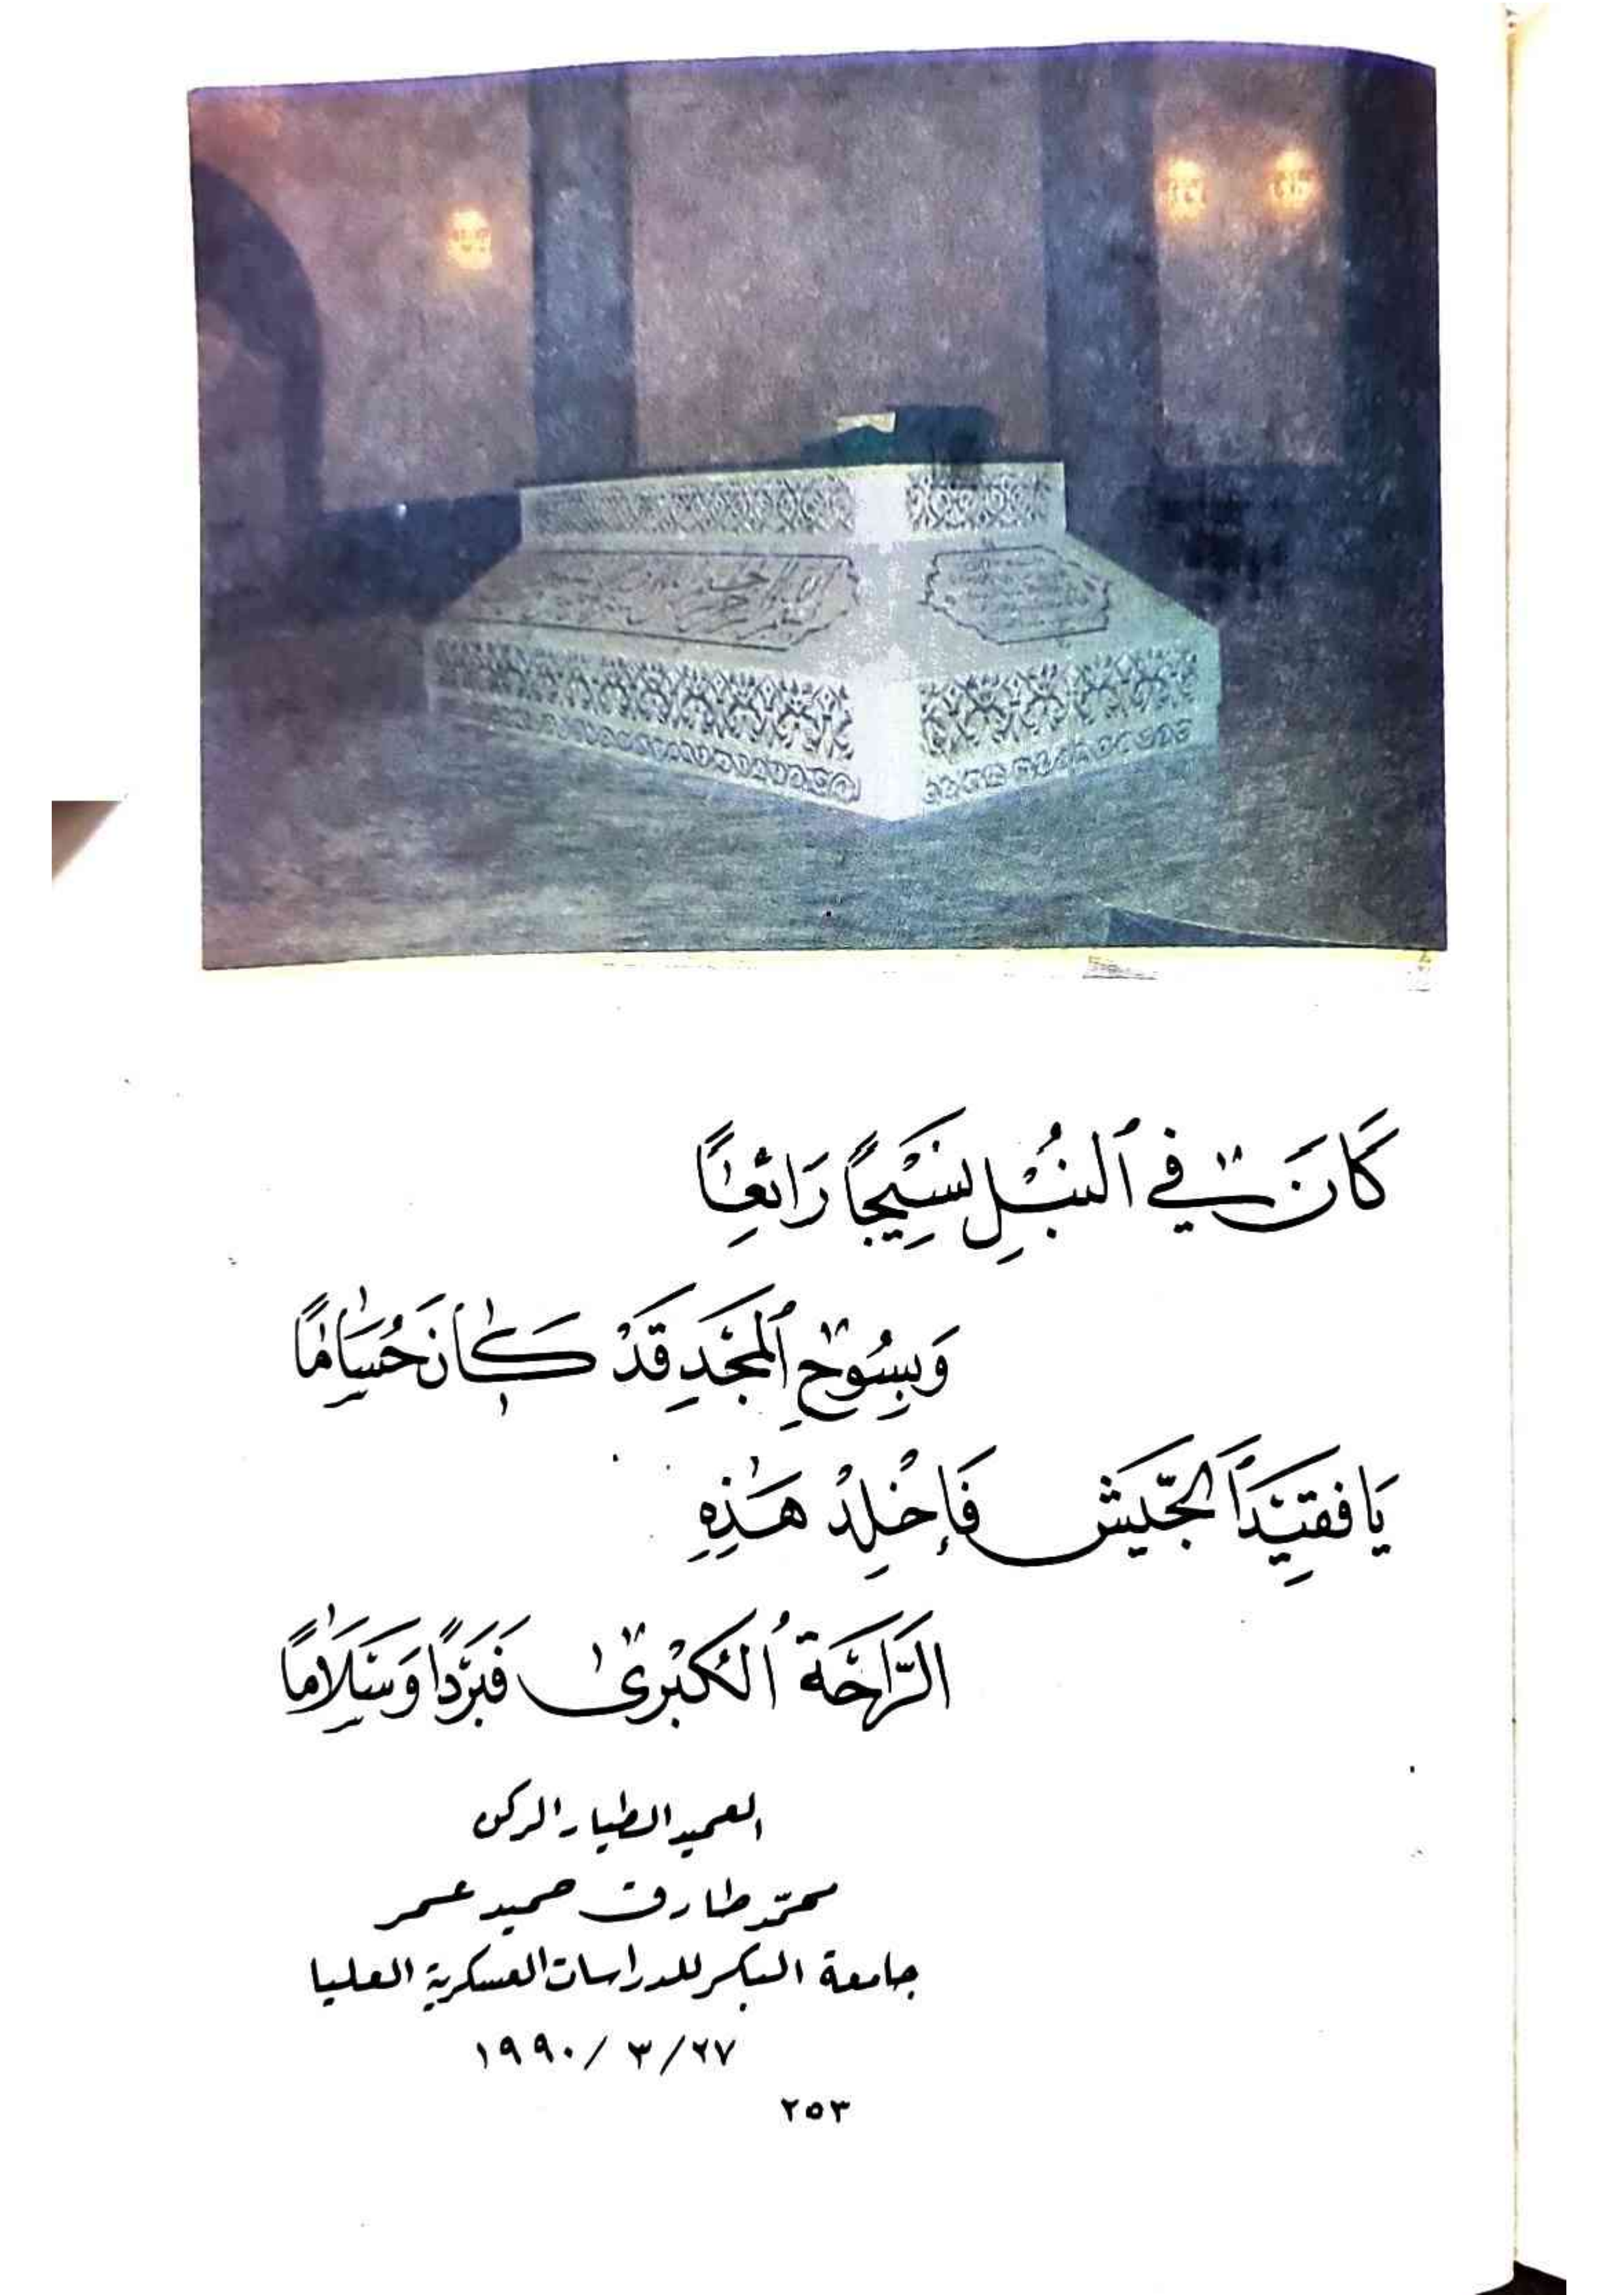 كَانَ في ٱلنُبْلِ نَسِيْجًا رَائعًا
وَبِسُوحِ ٱلمَجْدِ قَدْ كَانَ حُسَامًا
يَا فقيْدَ ٱلجَّيَش فَإخْلِدْ هَذِهِ
الرَّاحَّة ٱلكُبْرىٰ فَبَرْدًا وَسَلَامًا
العميد الطيار الركن
محمّد طارق حميد عمر
جامعة البكر للدراسات العسكرية العليا
٢٧/ ٣ /١٩٩٠
٢٥٣